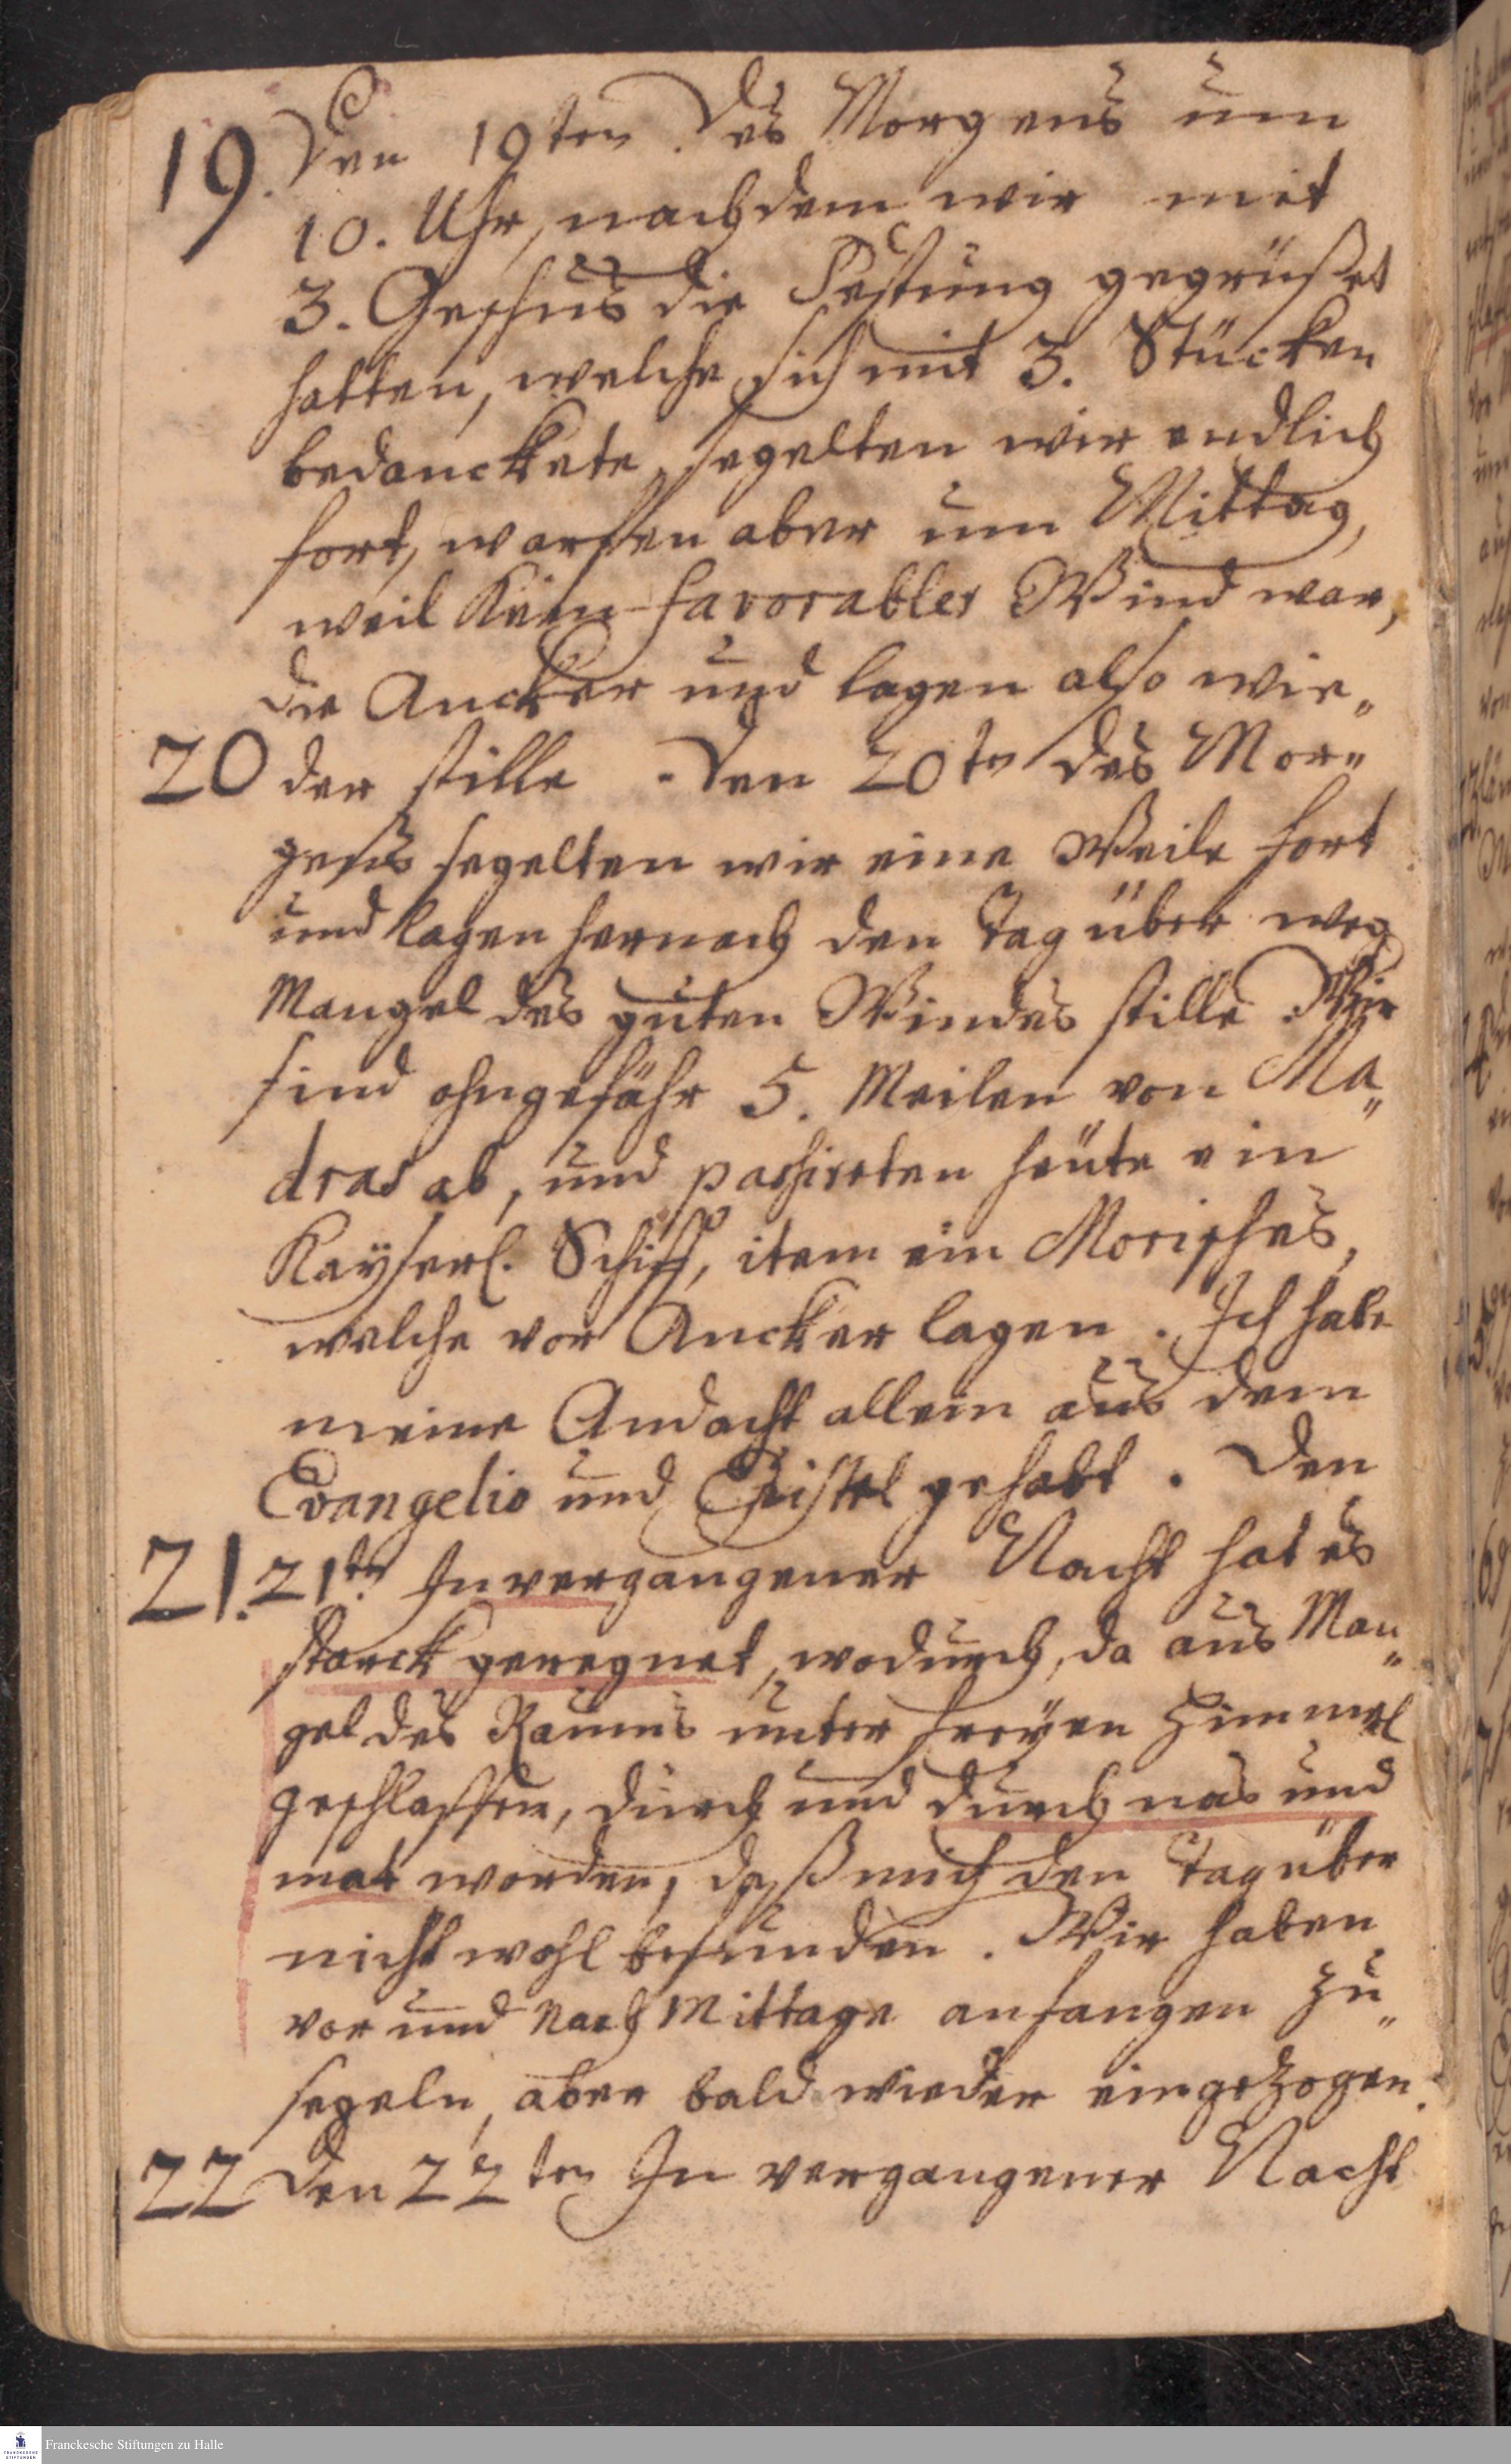 19. Den 19ten des Morgens um
10. Uhr, nachdem wir mit
3. Geschüs die Festung gegrüßet
hatten, welche sich mit 3. Stücken
bedanckete, segelten wir endlich
fort, warffen aber um Mittag,
weil kein favorabler Wind war,
die Ancker und lagen also wie„
20 der stille. Den 20ten des Mor„
gens segelten wir eine Weile fort
und lagen hernach den Tag über weg
Mangel des guten Windes stille. Wir
sind ohngefähr 5. Meilen von Ma„
dras ab, und passireten heute ein
Kayserl. Schiff, item ein Morisches,
welche vor Ancker lagen. Ich habe
meine Andacht allein aus dem
Evangelio und Epistel gehabt. Den
21. 21ten In vergangener Nacht hat es
starck geregnet, wodurch, da aus Man„
gel des Raums unter freyen Himmel
geschlaffen, durch und durch nas und
mat worden, daß mich den Tag über
nicht wohl befunden. Wir haben
vor und Nach Mittage anfangen zu„
segeln, aber bald wieder eingezogen.
22 Den 22ten In vergangener Nacht
Franckesche Stiftungen zu Halle